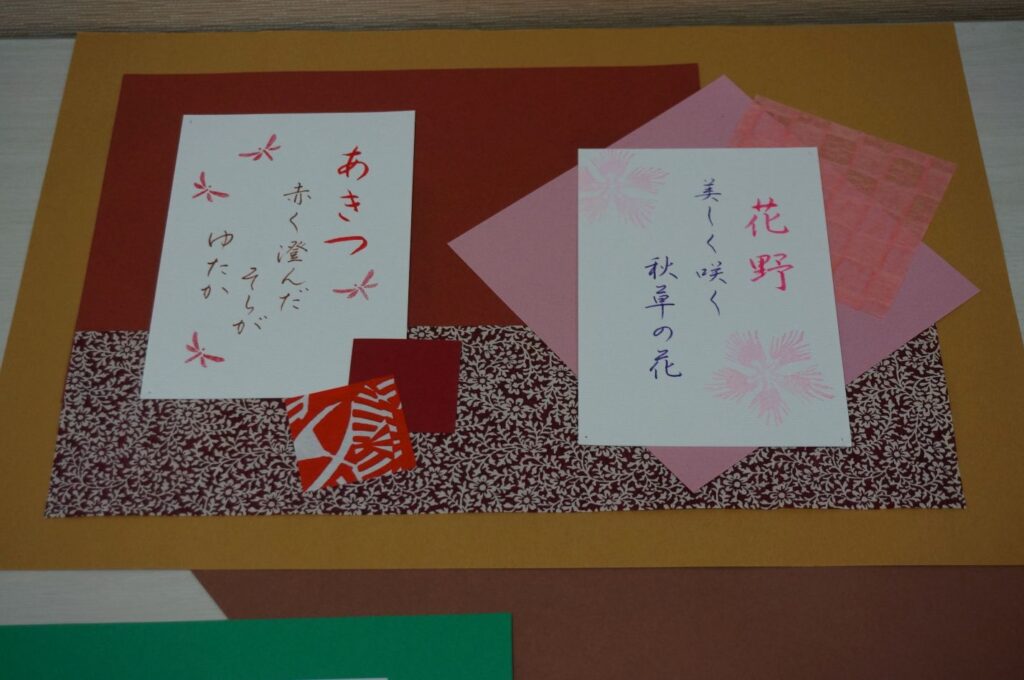 花野
美しく咲く
秋草の花
あきつ
赤く澄んだ
そらが
ゆたか